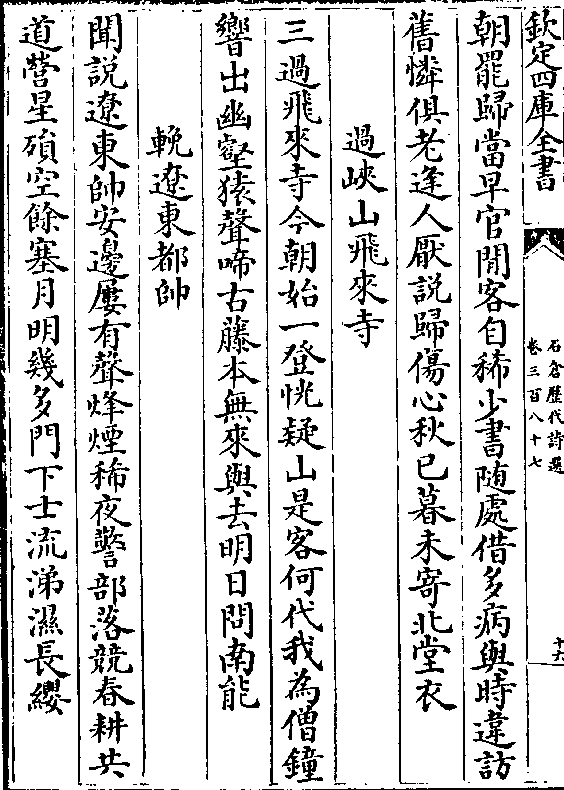 欽定四庫全書
石倉歷代詩選
卷三百八十七
十六
朝罷歸當早官閒客自稀少書随處借多病與時違訪
舊憐俱老逢人厭說歸傷心秋已暮未寄北堂衣
過峽山飛來寺
三過飛來寺今朝始一登恍疑山是客何代我為僧鐘
響出幽壑猿聲啼古藤本無來與去明日問南能
輓遼東都帥
聞說遼東帥安邊屢有聲烽煙稀夜警部落競春耕共
道營星隕空餘塞月明幾多門下士流涕濕長纓